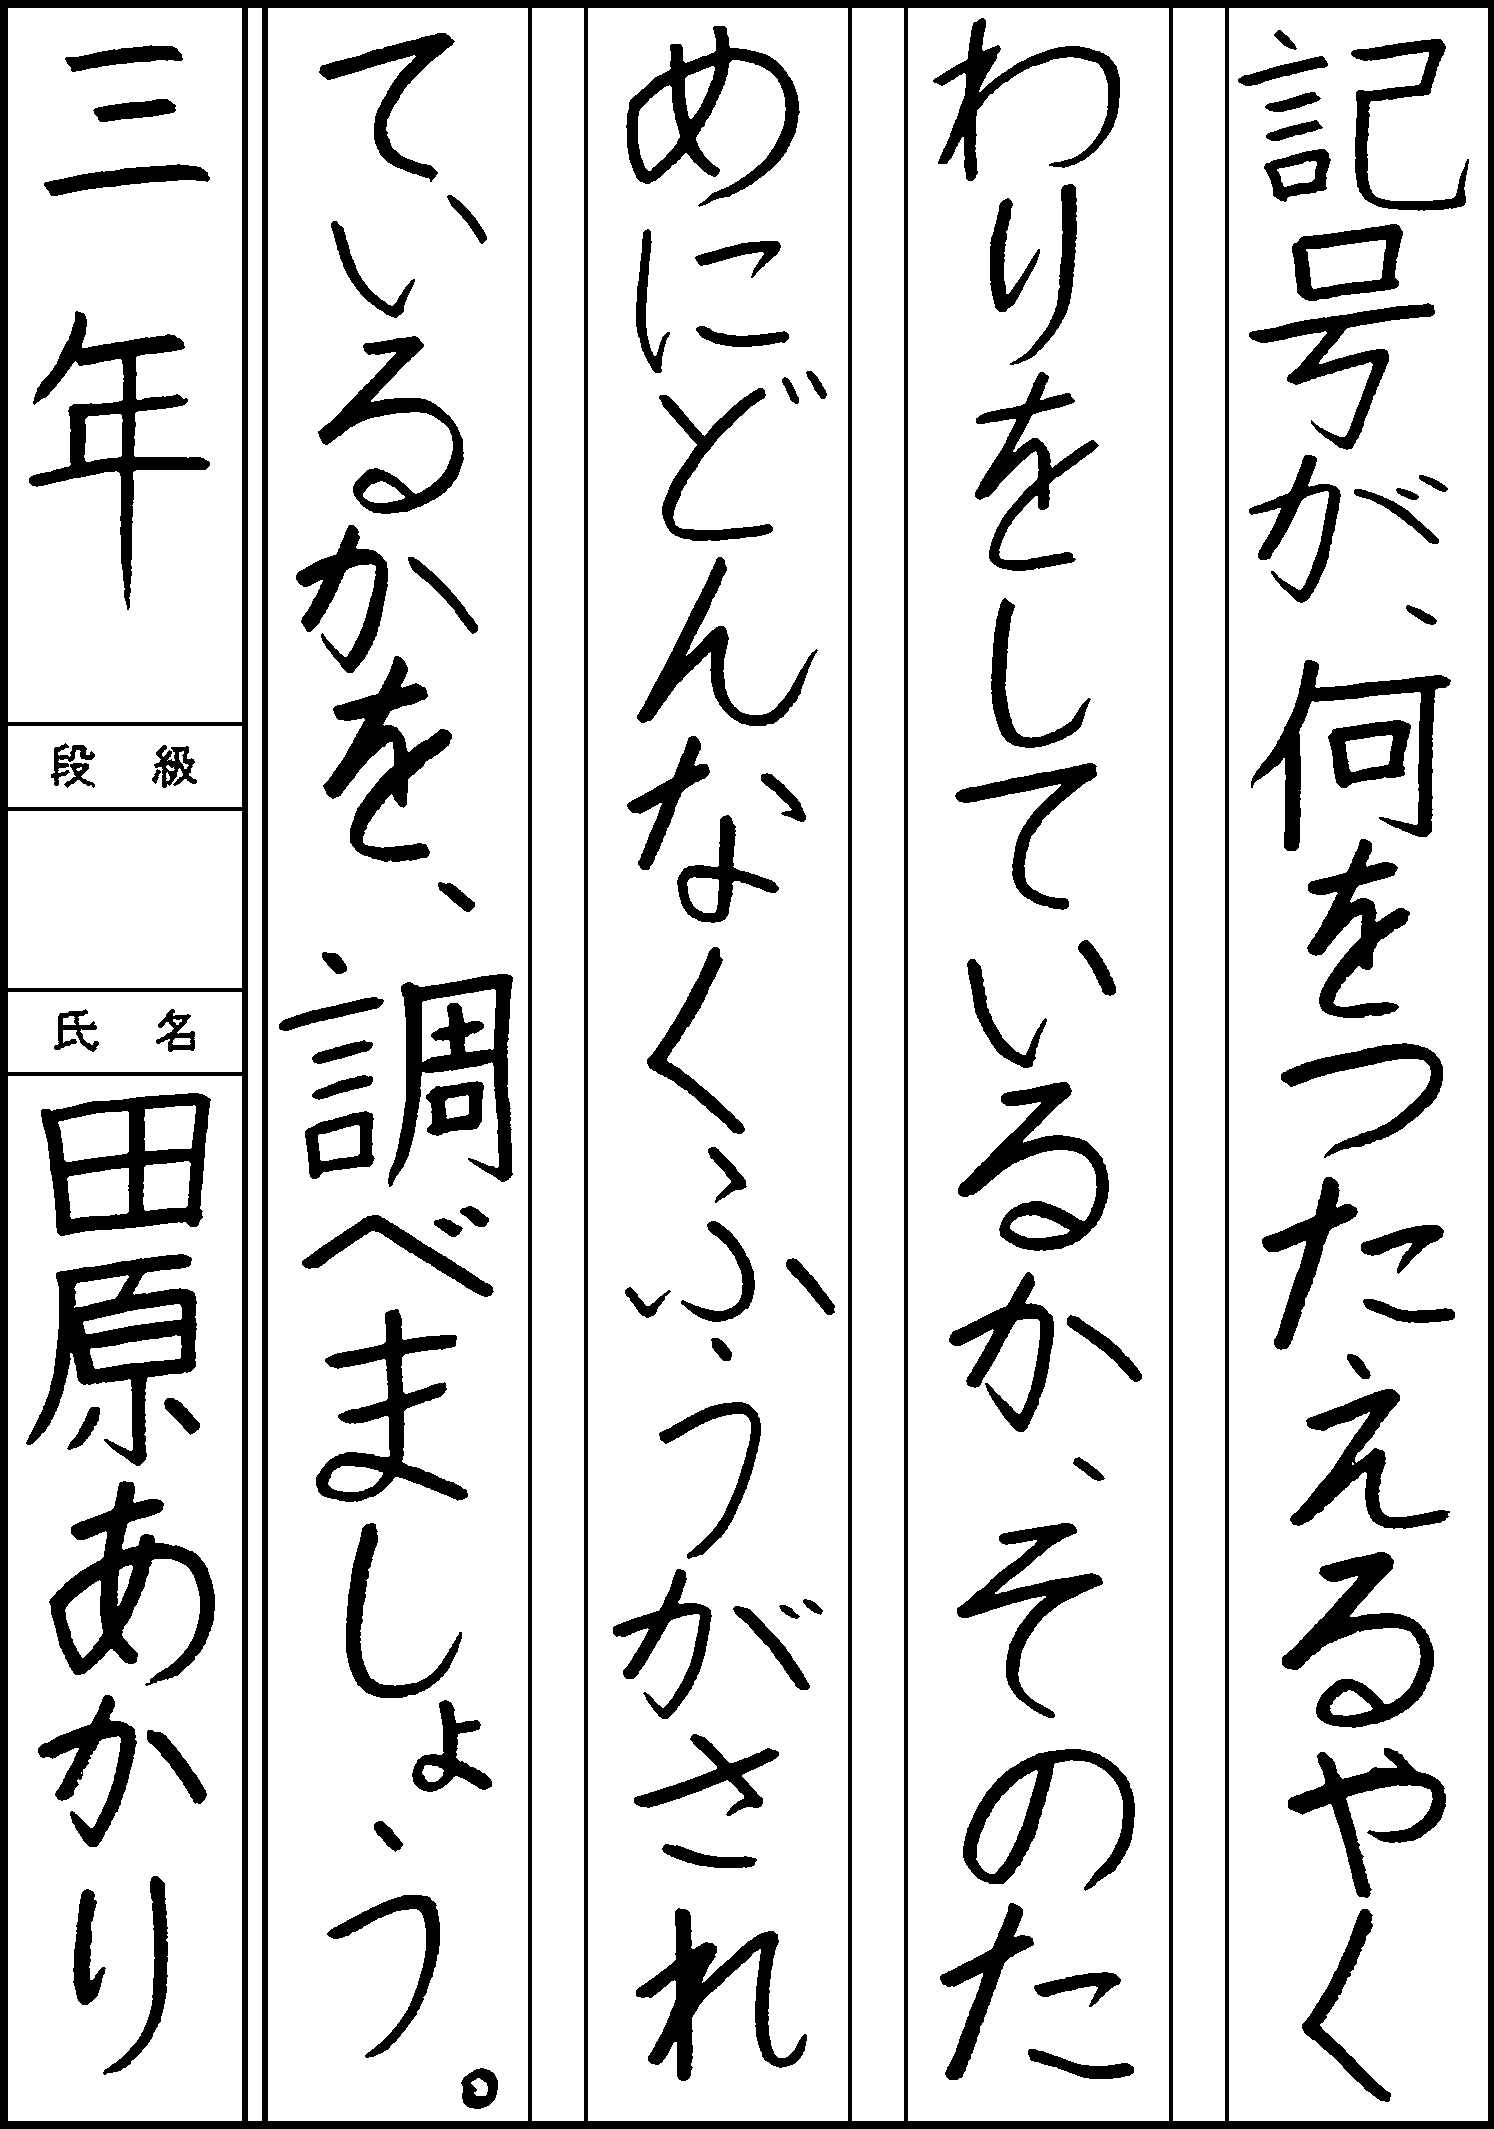 記号が、何をつたえるやく
わりをしているか、そのた
めにどんなくふうがされ
ているかを、調べましょう。
三年
段級
氏名
田原あかり